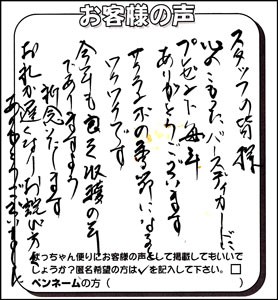 お客様の声
スタッフの皆様
心のこもったバースディカードに
プレゼント毎年
ありがとうございます
サクランボの季節になると
ワクワクです
今年も豊き収穫の年
でありますよう
祈念いたします
お礼が遅くなりお詫び方々
ありがとうございました
なっちゃん便りにお客様の声として掲載してもいいで
しょうか？匿名希望の方は✓を記入して下さい。□
ペンネームの方（　　　　　）